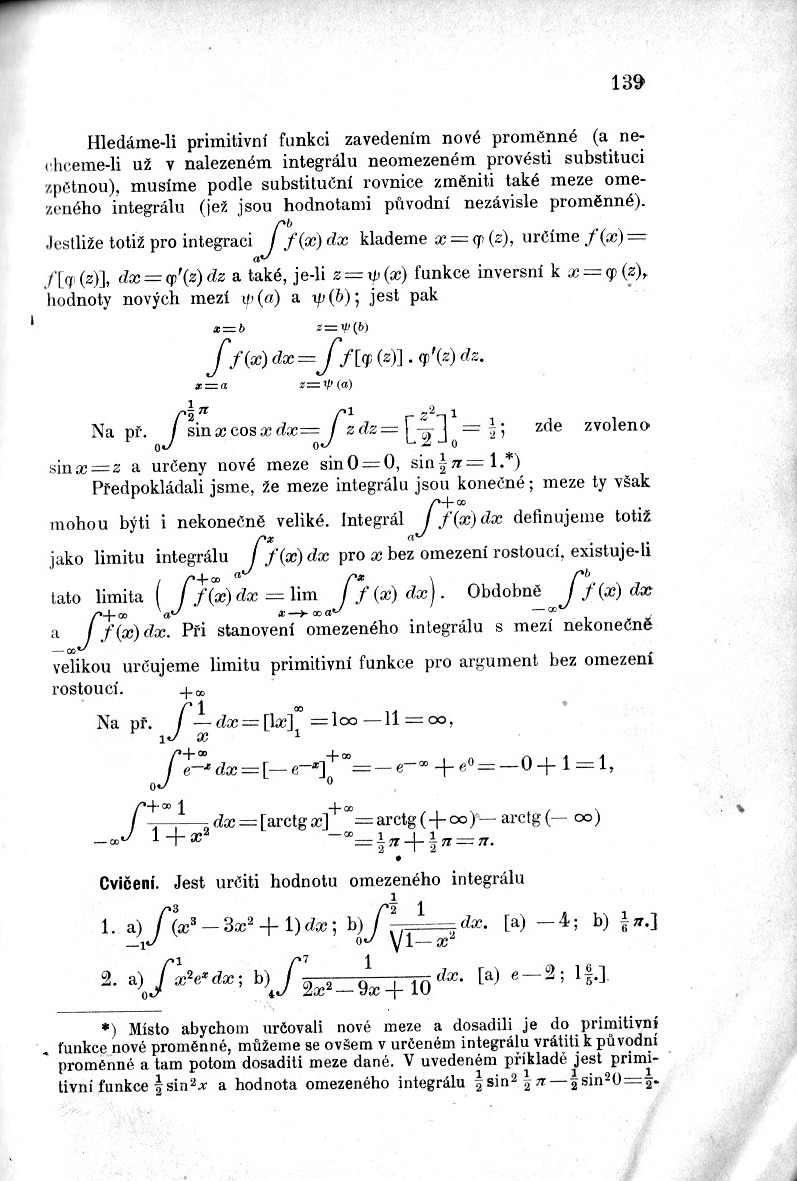 139
Hledáme-li primitivní funkci zavedením nové proměnné (a ne-
chceme-li už v nalezeném integrálu neomezeném provésti substituci
zpětnou), musíme podle substituční rovnice změniti také meze ome-
zeného integrálu (jež jsou hodnotami původní nezávisle proměnné).
Jestliže totiž pro integraci ∫_a^b f(x) dx klademe x = φ (z), určíme f(x) =
f[φ (z)], dx = φ′(z) dz a také, je-li z = ψ (x) funkce inversní k x = φ (z),
hodnoty nových mezí ψ (a) a ψ (b); jest pak
∫_{x=a}^{x=b} f(x) dx = ∫_{z=ψ (a)}^{z=ψ (b)} f[φ (z)] . φ′(z) dz.
Na př. ∫_0^{½π} sin x cos x dx = ∫_0^1 z dz = [z²/2]_0^1 = ½; zde zvoleno
sin x = z a určeny nové meze sin 0 = 0, sin ½ π = 1.*)
Předpokládali jsme, že meze integrálu jsou konečné; meze ty však
mohou býti i nekonečně veliké. Integrál ∫_a^{+∞} f(x) dx definujeme totiž
jako limitu integrálu ∫_a^x f(x) dx pro x bez omezení rostoucí, existuje-li
tato limita ( ∫_a^{+∞} f(x) dx = lim_{x→∞} ∫_a^x f (x) dx). Obdobně ∫_{—∞}^b f(x) dx
a ∫_{—∞}^{+∞} f(x) dx. Při stanovení omezeného integrálu s mezí nekonečně
velikou určujeme limitu primitivní funkce pro argument bez omezení
rostoucí.
Na př. ∫_1^{+∞} 1/x dx = [lx]_1^∞ = l∞ — l1 = ∞,
∫_0^{+∞} e^{—x} dx = [— e^{—x}]_0^{+∞} = — e^{—∞} + e⁰ = — 0 + 1 = 1,
∫_{—∞}^{+∞} 1/(1 + x²) dx = [arctg x]_{—∞}^{+∞} = arctg (+ ∞) — arctg (— ∞)
= ½ π + ½ π = π.
Cvičení. Jest určiti hodnotu omezeného integrálu
1. a) ∫_{—1}^3 (x³ — 3x² + 1) dx; b) ∫_0^{½} 1/√(1 — x²) dx. [a) — 4; b) ⅙ π.]
2. a) ∫_0^1 x²eˣ dx; b) ∫_4^7 1/(2x² — 9x + 10) dx. [a) e — 2; l 6/5.]
*) Místo abychom určovali nové meze a dosadili je do primitivní
funkce nové proměnné, můžeme se ovšem v určeném integrálu vrátiti k původní
proměnné a tam potom dosaditi meze dané. V uvedeném příkladě jest primi-
tivní funkce ½ sin² x a hodnota omezeného integrálu ½ sin² ½ π — ½ sin² 0 = ½.